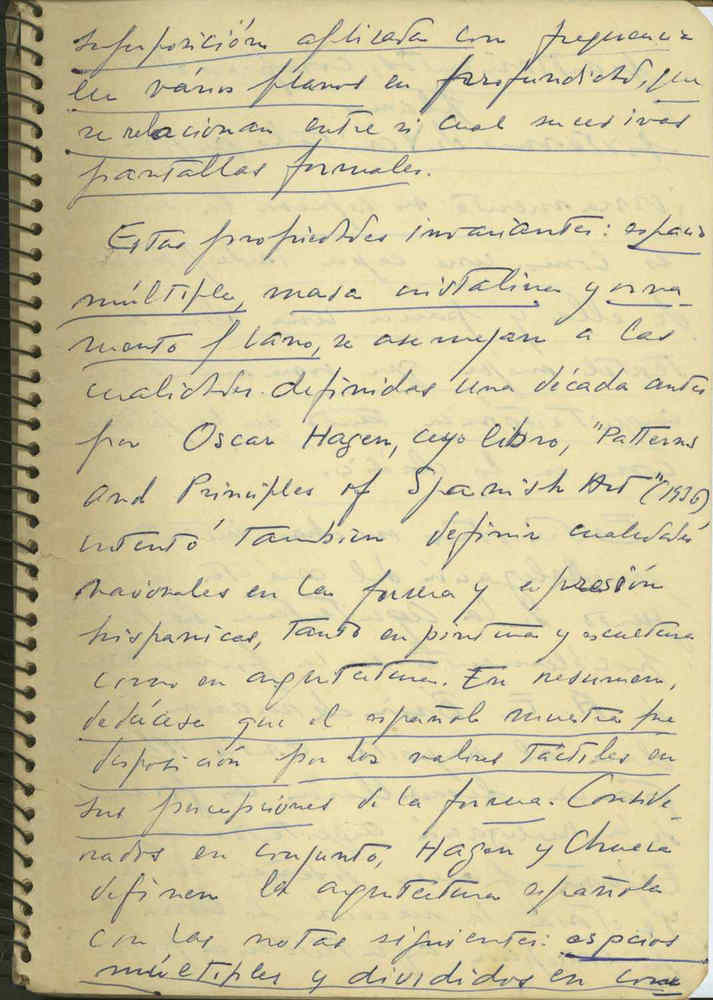 superposición aplicada con frequencia
en vários planos en profundidad, que
se relacionan entre si cual sucesivas
pantallas formales.
Estas propiedades invariantes: espacio
múltiple, masa cristalina y orna-
mento plano, se asemejan a las
cualidades definidas una década antes
por Oscar Hagen, cuyo libro, "Patterns
and Principles of Spanish Art" (1936)
intentó tambien definir cualidades
nacionales en la forma y expresión
hispanicas, tanto en pintura y escultura
como en arquitectura. En resumen,
dedúcese que el español muestra pre
disposición por los valores táctiles en
sus percepciones de la forma. Conside-
rados en conjunto, Hagen y Chueca
definen la arquitectura española
con las notas siguientes: espcios
múltiples y divididos en